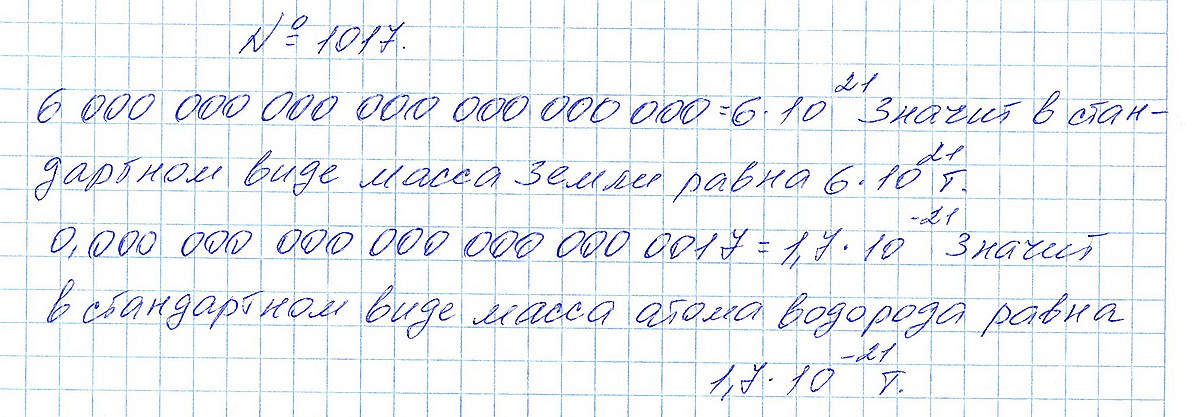 № 1017.
6 000 000 000 000 000 000 000 = 6·10²¹ Значит в стан-
дартном виде масса Земли равна 6·10²¹ т.
0,000 000 000 000 000 000 0017 = 1,7·10⁻²¹ Значит
в стандартном виде масса атома водорода равна
1,7·10⁻²¹ т.